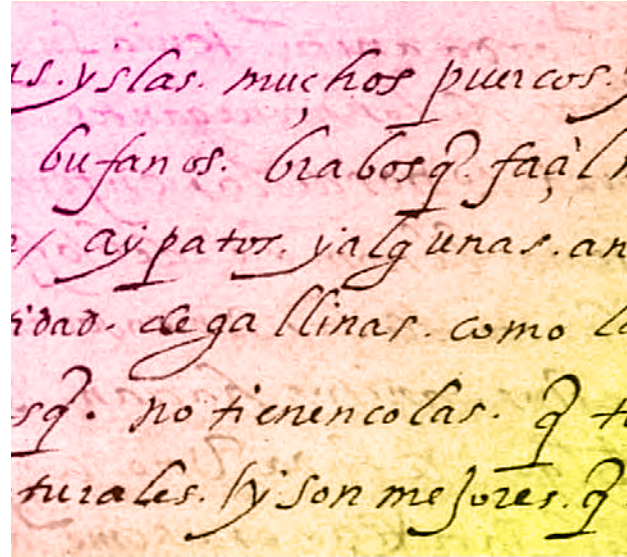 as. yslas. muchos puercos. y
bufanos. brabosq̃. façil
ay patos. yalgunas. an
idad. degallinas. como la
sq̃. no tienencolas. q̃ t
turales. / y son mejores. q̃